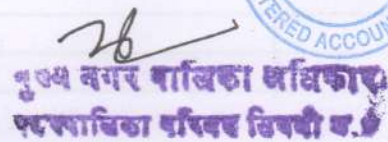 TERED ACCOU
मुख्य नगर पालिका अधिकारी
नगरपालिका परिषद सिवनी म.प्र